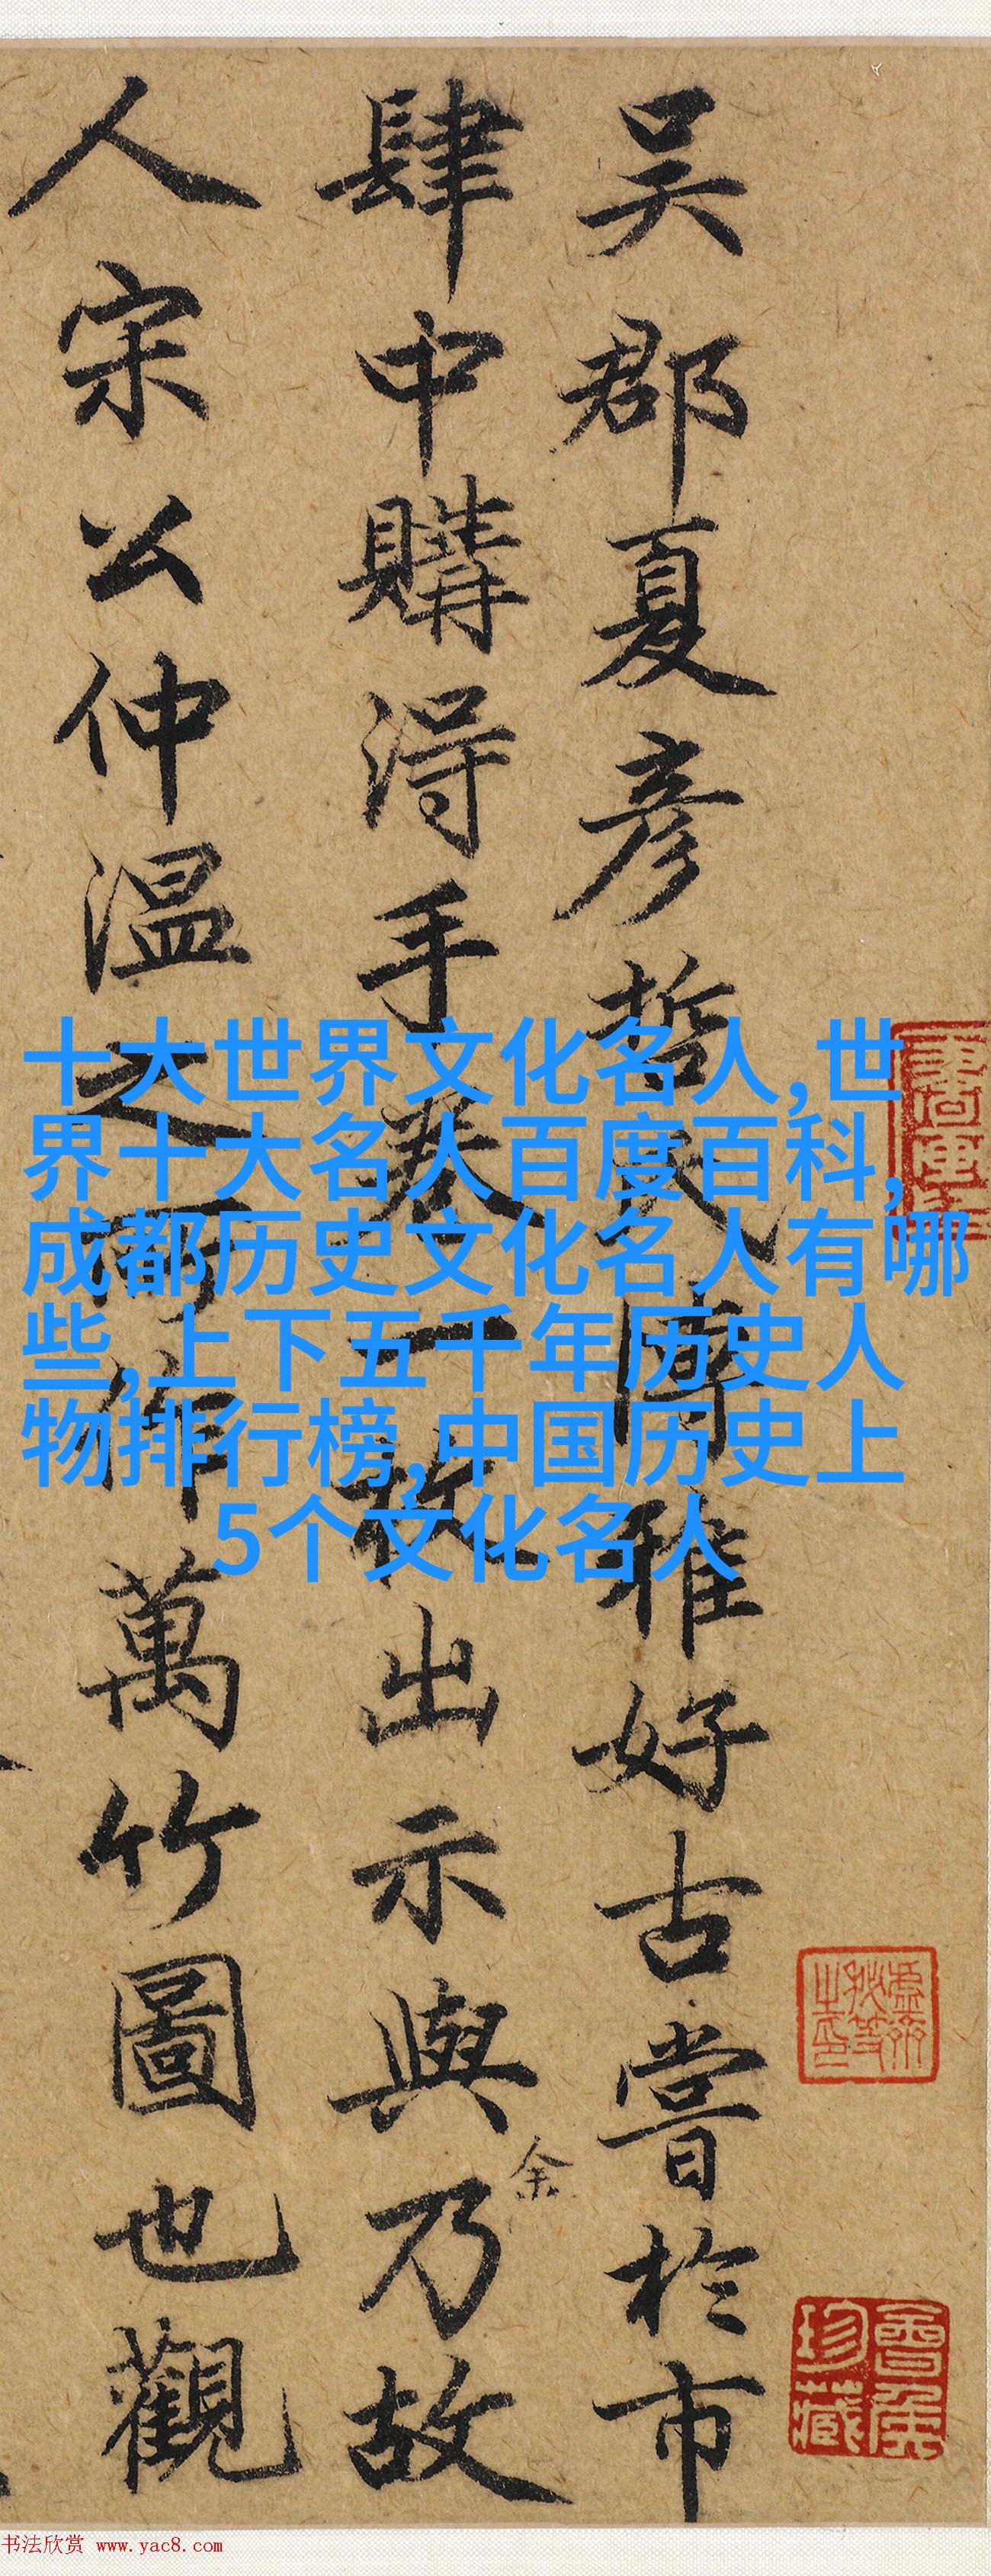 吳郡夏彥哲民博雅好古嘗於市
肆中購得手卷一枚出示與余乃故
人宋公仲溫之所作萬竹圖也觀
十大世界文化名人,世
界十大名人百度百科,
成都历史文化名人有哪
些,上下五千年历史人
物排行榜,中国历史上
5个文化名人
珍藏
书法欣赏 www.yac8.com